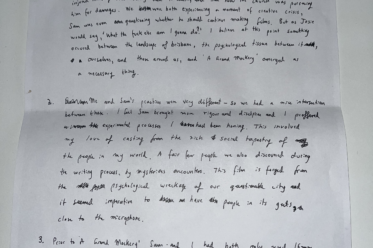 him for damages. We were both experiencing a moment of creative crisis,
Sam was even questioning whether to continue making films. But as Jose
would say, 'What the fuck else am I gonna do?' I believe at this point something
occured between the landscape of brisbane, the psychological tissue between it
& ourselves, and then around us, and A Grand Mockery emerged as
a necessary thing.
2. Me and Sam's practice were very different - so we had a nice intersection
between these. I felt Sam brought more rigour and discipline and I
experimental processes I had been honing. This involved
my love of casting from the rich & social tapestry of
the people in my world. A fair few people we also discovered during
the writing process, by mysterious encounter. This film is forged from
the psychological wreckage of our questionable city and
it seemed imperative to have people in its guts
close to the microphone.
3. Prior to A Grand Mockery Sam and I had both only used